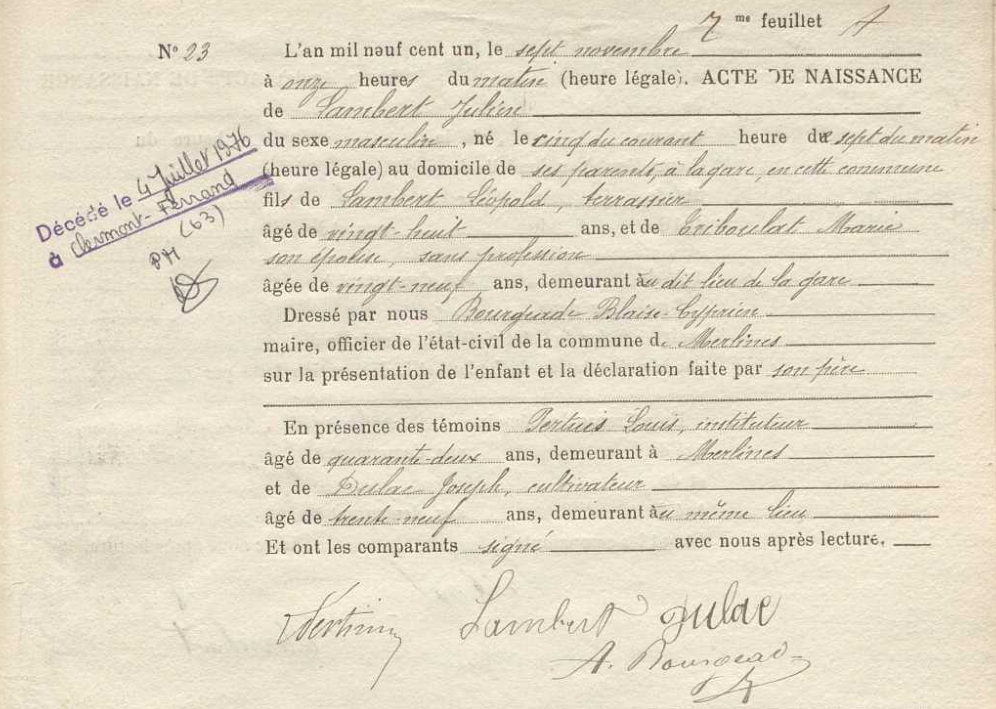 7 me feuillet
N° 23 L'an mil neuf cent un, le sept novembre
à onze heures du matin (heure légale). ACTE DE NAISSANCE
de Lambert Julien
du sexe masculin, né le cinq du courant heure de sept du matin
(heure légale) au domicile de ses parents, à la gare, en cette commune
fils de Lambert Léopold, terrassier
âgé de vingt-huit ans, et de Triboulat Marie
son épouse, sans profession
âgée de vingt-neuf ans, demeurant au dit lieu de la gare
Dressé par nous Bourgeade Blaise-Cyprien
maire, officier de l'état-civil de la commune de Merlines
sur la présentation de l'enfant et la déclaration faite par son père
En présence des témoins Pertuis Louis, instituteur
âgé de quarante-deux ans, demeurant à Merlines
et de Dulac Joseph, cultivateur
âgé de trente-neuf ans, demeurant au même lieu
Et ont les comparants signé avec nous après lecture.
Lambert Dulac
Décédé le 4 Juillet 1976
à Clermont-Ferrand
(63)